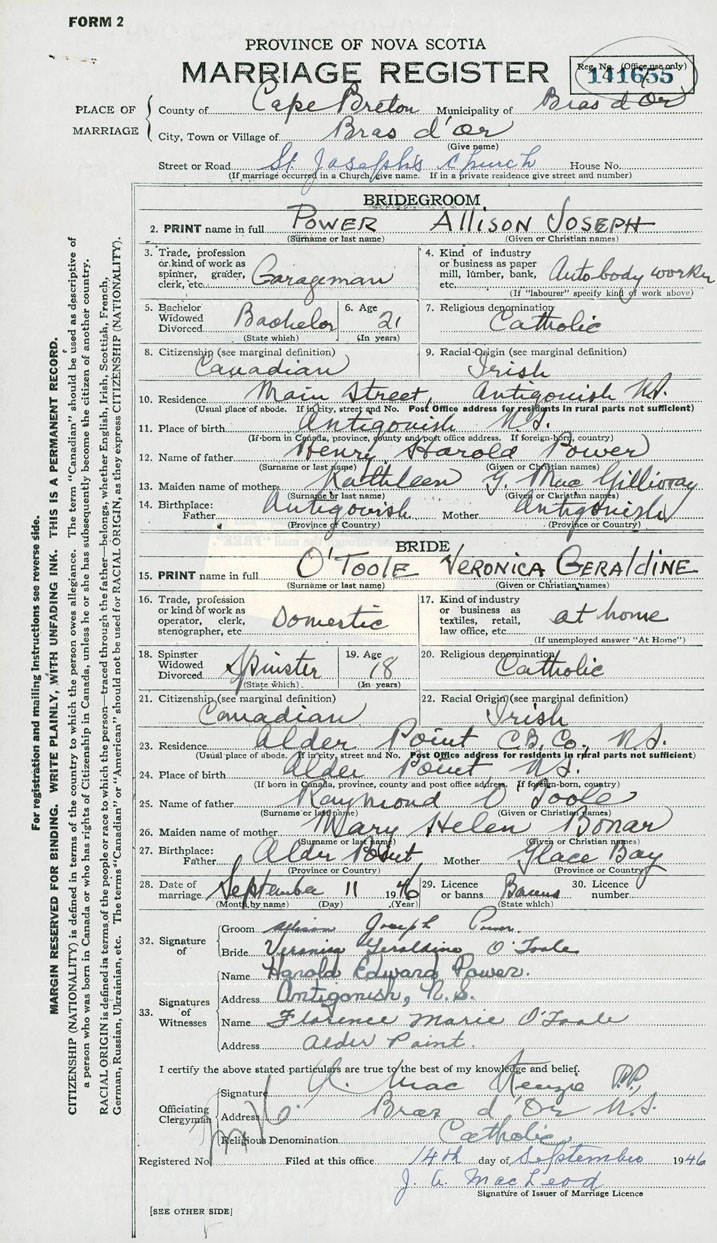 FORM 2
PROVINCE OF NOVA SCOTIA
MARRIAGE REGISTER
Reg. No. (Office use only)
141655
PLACE OF MARRIAGE
County of Cape Breton Municipality of Bras d'Or
City, Town or Village of Bras d'Or
(Give name)
Street or Road St. Joseph's Church House No.
(If marriage occurred in a Church, give name. If in a private residence give street and number)
BRIDEGROOM
2. PRINT name in full POWER ALLISON JOSEPH
(Surname or last name) (Given or Christian names)
3. Trade, profession or kind of work as spinner, grader, clerk, etc. Garageman
4. Kind of industry or business as paper mill, lumber, bank, etc. Autobody worker
(If "labourer" specify kind of work above)
5. Bachelor Widowed Divorced Bachelor
(State which)
6. Age 21
(In years)
7. Religious denomination Catholic
8. Citizenship (see marginal definition) Canadian
9. Racial Origin (see marginal definition) Irish
10. Residence Main Street, Antigonish N.S.
(Usual place of abode. If in city, street and No. Post Office address for residents in rural parts not sufficient)
11. Place of birth Antigonish N.S.
(If born in Canada, province, county and post office address. If foreign-born, country)
12. Name of father Henry Harold Power
(Surname or last name) (Given or Christian names)
13. Maiden name of mother Kathleen G. MacGillivray
(Surname or last name) (Given or Christian names)
14. Birthplace: Father Antigonish Mother Antigonish
(Province or Country) (Province or Country)
BRIDE
15. PRINT name in full O'TOOLE VERONICA GERALDINE
(Surname or last name) (Given or Christian names)
16. Trade, profession or kind of work as operator, clerk, stenographer, etc. Domestic
17. Kind of industry or business as textiles, retail, law office, etc. at home
(If unemployed answer "At Home")
18. Spinster Widowed Divorced Spinster
(State which)
19. Age 18
(In years)
20. Religious denomination Catholic
21. Citizenship (see marginal definition) Canadian
22. Racial Origin (see marginal definition) Irish
23. Residence Alder Point C.B. Co., N.S.
(Usual place of abode. If in city, street and No. Post Office address for residents in rural parts not sufficient)
24. Place of birth Alder Point N.S.
(If born in Canada, province, county and post office address. If foreign-born, country)
25. Name of father Raymond O'Toole
(Surname or last name) (Given or Christian names)
26. Maiden name of mother Mary Helen Bonar
(Surname or last name) (Given or Christian names)
27. Birthplace: Father Alder Point Mother Glace Bay
(Province or Country) (Province or Country)
28. Date of marriage September 11 1946
(Month by name) (Day) (Year)
29. Licence or banns Banns
(State which)
30. Licence number
32. Signature of
Groom Allison Joseph Power
Bride Veronica Geraldine O'Toole
33. Signatures of Witnesses
Name Harold Edward Power.
Address Antigonish, N.S.
Name Florence Marie O'Toole
Address Alder Point.
I certify the above stated particulars are true to the best of my knowledge and belief.
Officiating Clergyman
Signature A. MacKenzie P.P.
Address Bras d'Or N.S.
Religious Denomination Catholic
Registered No. Filed at this office 14th day of September 1946
J. A. MacLeod
Signature of Issuer of Marriage Licence
[SEE OTHER SIDE]
For registration and mailing instructions see reverse side.
MARGIN RESERVED FOR BINDING. WRITE PLAINLY, WITH UNFADING INK. THIS IS A PERMANENT RECORD.
CITIZENSHIP (NATIONALITY) is defined in terms of the country to which the person owes allegiance. The term "Canadian" should be used as descriptive of
a person who was born in Canada or who has rights of Citizenship in Canada, unless he or she has subsequently become the citizen of another country.
RACIAL ORIGIN is defined in terms of the people or race to which the person—traced through the father—belongs, whether English, Irish, Scottish, French,
German, Russian, Ukrainian, etc. The terms "Canadian" or "American" should not be used for RACIAL ORIGIN, as they express CITIZENSHIP (NATIONALITY).